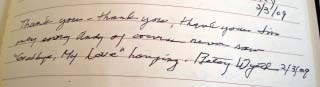 2/3/09
Thank you – thank you, thank you
my Andy of course never saw
"Goodbye, My Love" hanging. Betsy Wyeth 2/3/09